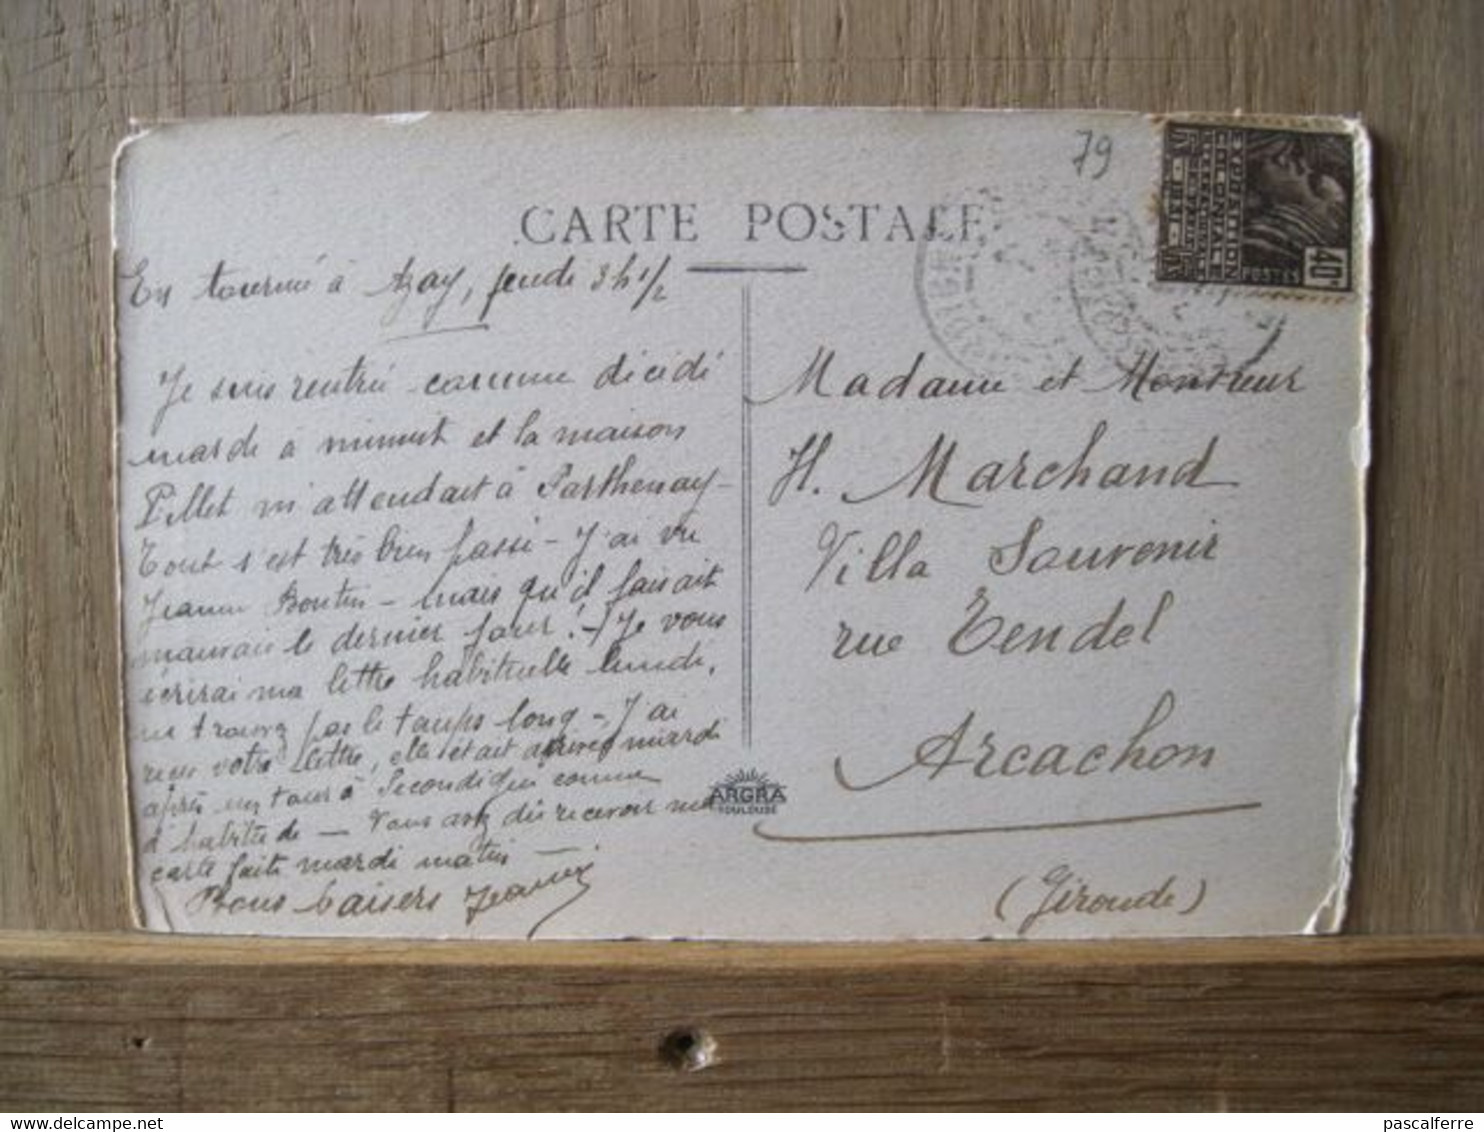 79
CARTE POSTALE
EXPOSITION
COLONIALE
INTERNATIONALE
PARIS 1931
POSTES
40c
En tournée à Azay, jeudi 3h 1/2
Je suis rentrée comme décidé
mardi à minuit et la maison
Pillet m'attendait à Parthenay -
Tout s'est très bien passé - J'ai vu
Jeanne Boutin - Mais qu'il faisait
mauvais le dernier jour ! - Je vous
écrirai ma lettre habituelle lundi,
ne trouvez pas le temps long - J'ai
reçu votre lettre, elle était arrivée mardi
après un tour à Secondigné comme
d'habitude - Vous avez dû recevoir ma
carte faite mardi matin -
Bons baisers
Madame et Monsieur
H. Marchand
Villa Souvenir
rue
Arcachon
(Gironde)
ARGRA
TOULOUSE
pascalferre